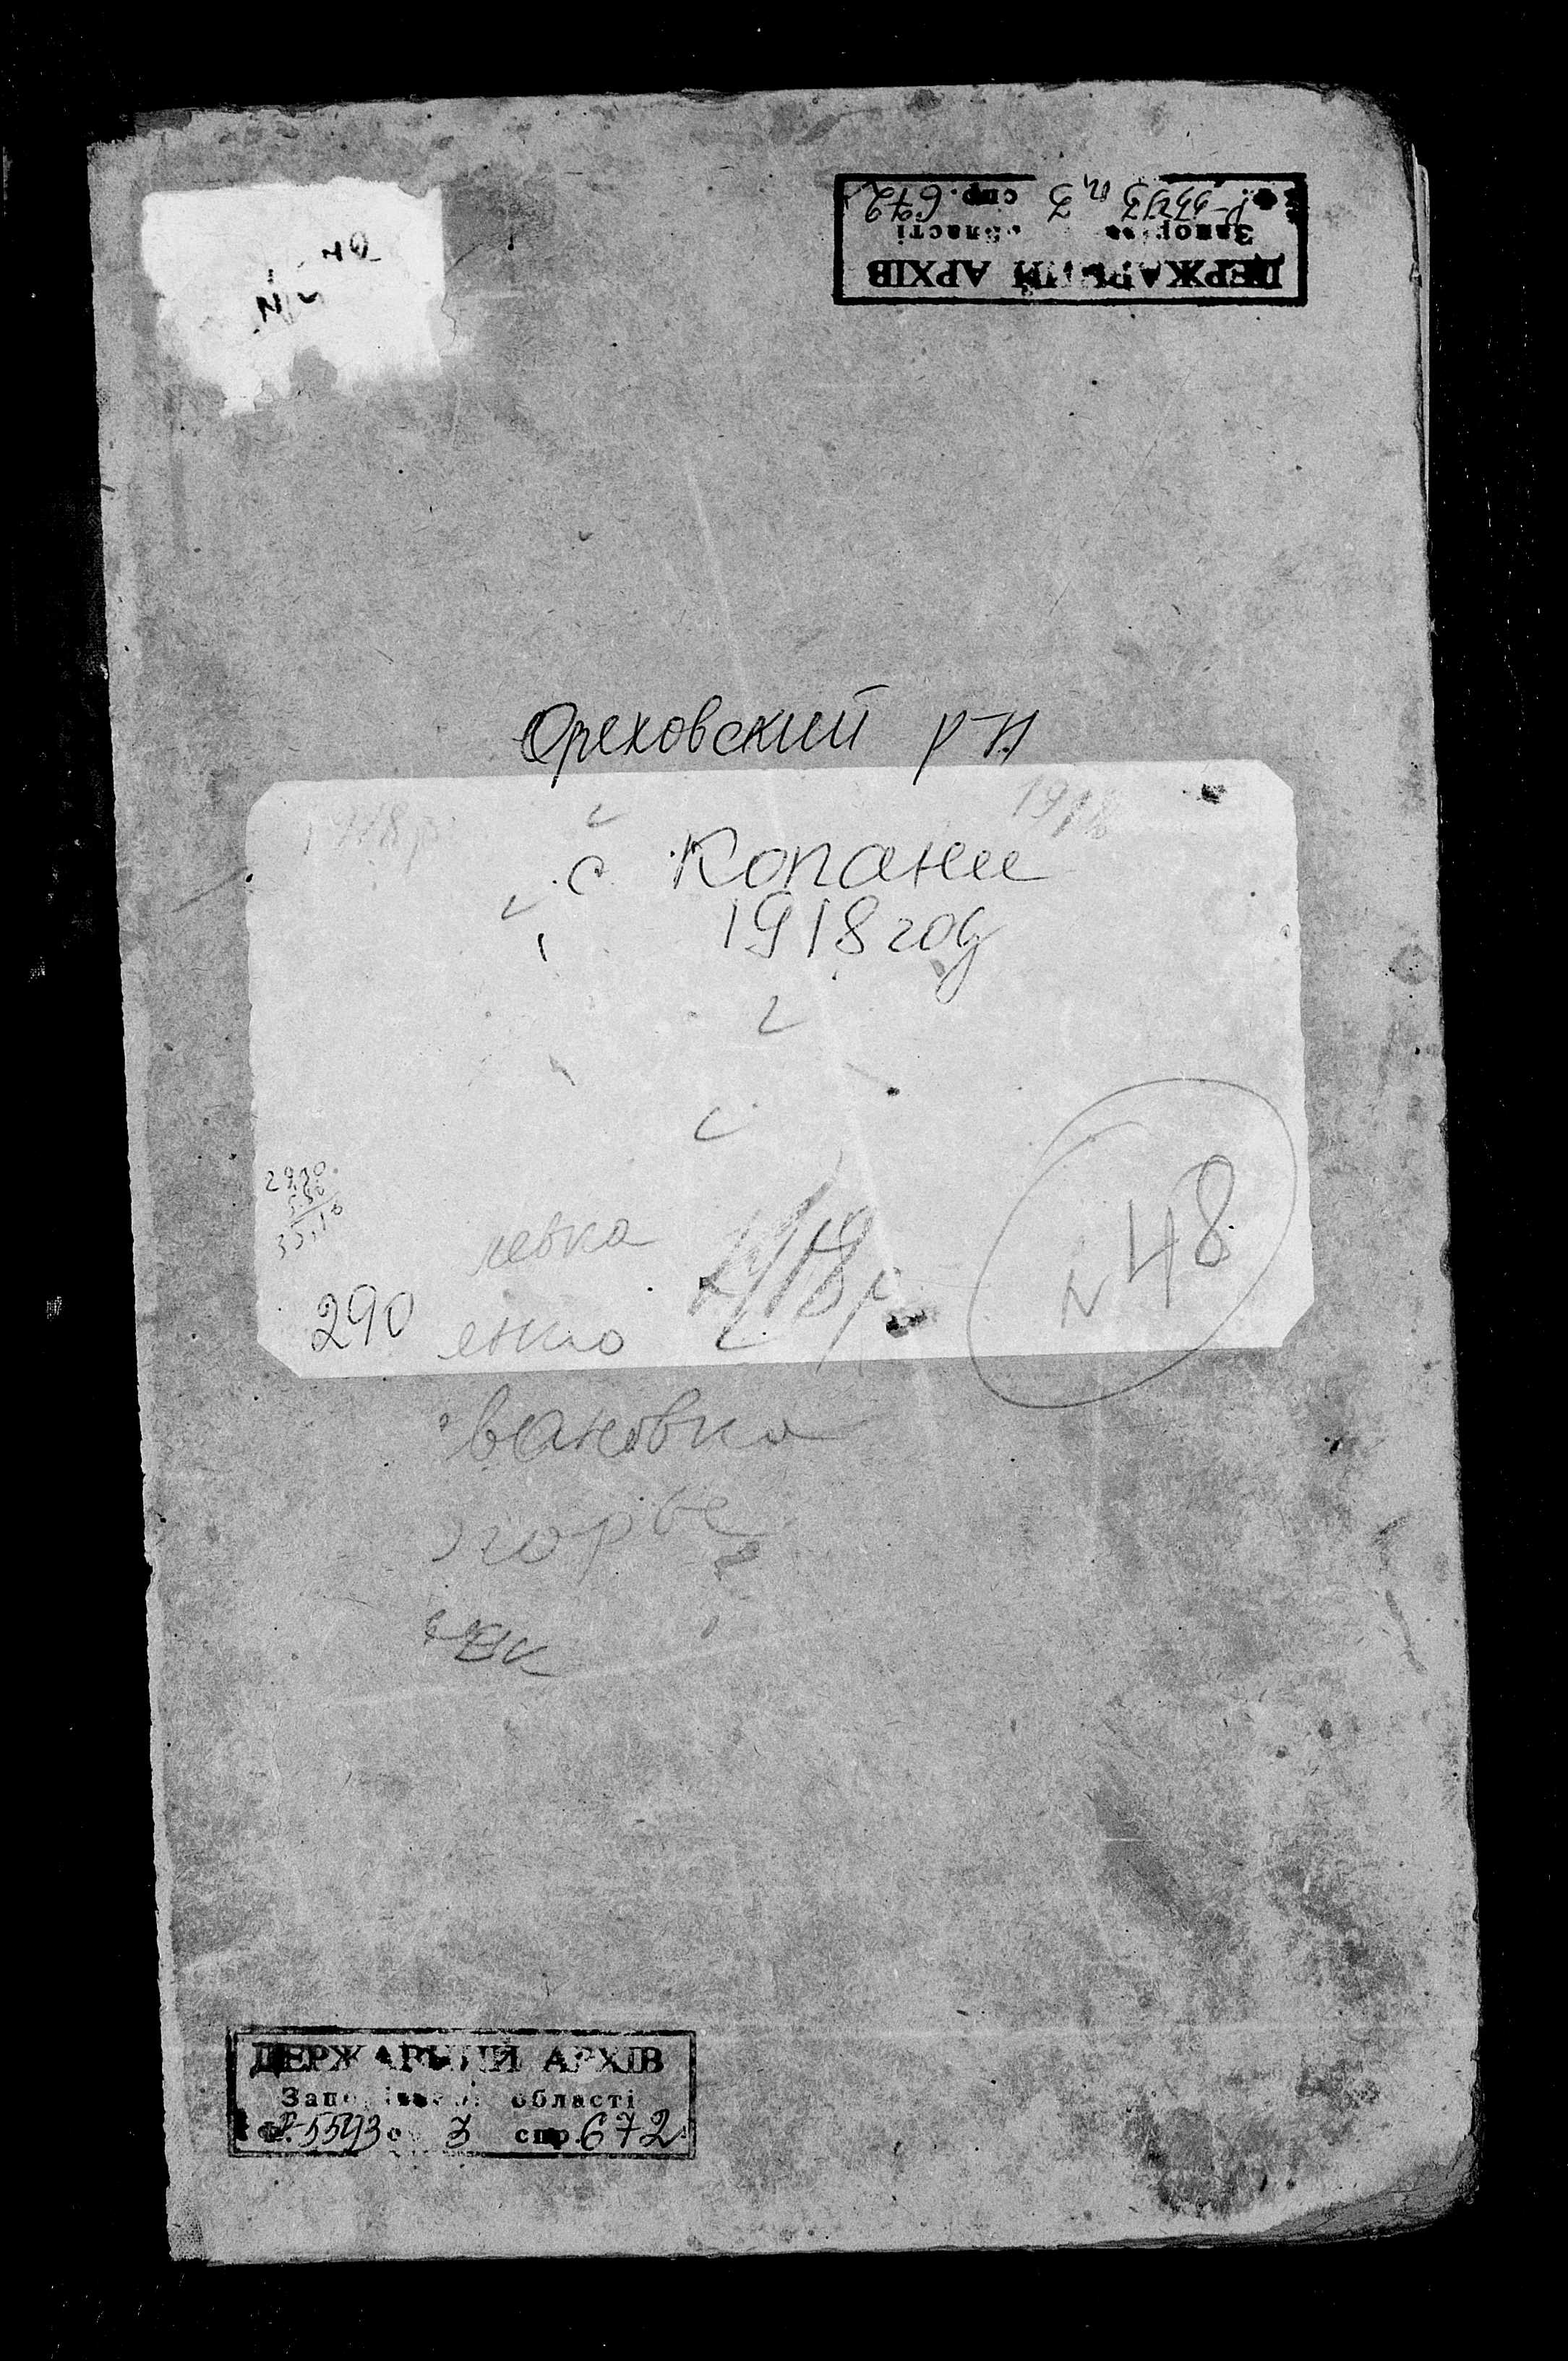 ДЕРЖАВНИЙ АРХІВ
Запорізької області
Ф. Р-5593 оп. 3 спр. 672
Ореховский р-н
1918 р
с Копание
1918 году
29,20
5,90
35,10
левка
1918 р
N 48
290
енко
вановка
горье
ДЕРЖАВНИЙ АРХІВ
Запорізької області
Ф. Р-5593 оп. 3 спр. 672